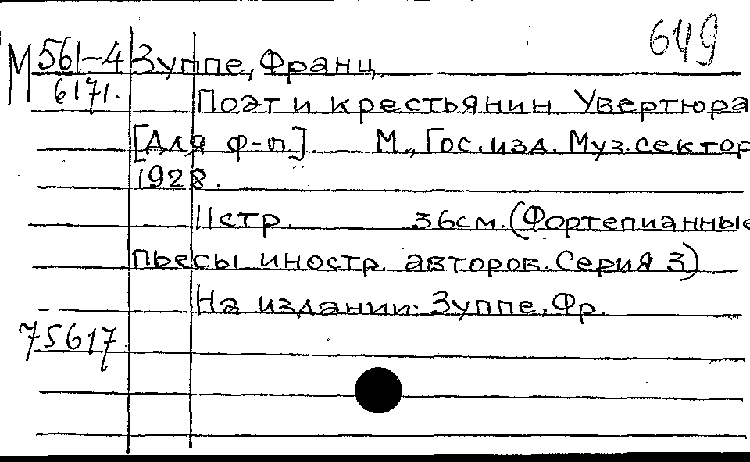 649
М 561-4 Зуппе, Франц.
6171.
Поэт и крестьянин Увертюра
[Для ф-п.] М., Гос. изд. Муз. сектор
1928.
11стр. 36см. (Фортепианные
пьесы иностр. авторов. Серия 3)
На издании: Зуппе, Фр.
75617.